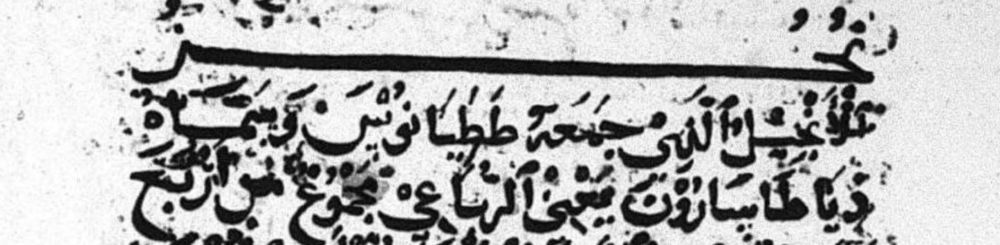 نجز
الانجيل الذي جمعه ططيانوس وسماه
ذياطاسارون يعني الرباعي مجموع من اربع